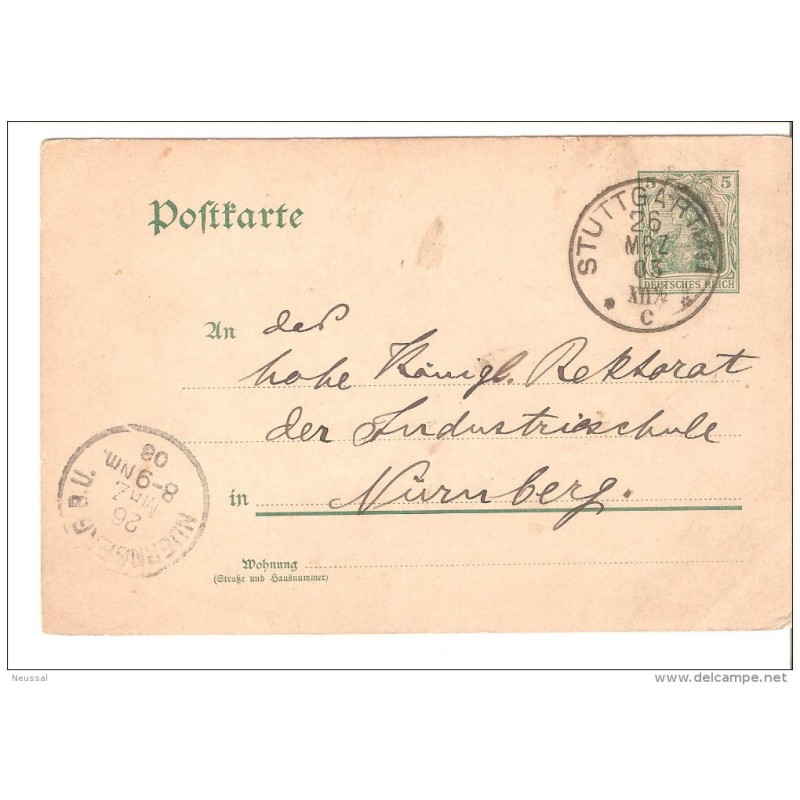 Postkarte
5 5
DEUTSCHES REICH
STUTTGART
26
MRZ
03
XII½
C
An das
hohe Königl. Rektorat
der Industrieschule
in Nürnberg.
Wohnung
(Straße und Hausnummer)
NUERNBERG B.U.
26
MRZ
8-9 Nm.
03
Neussal
delcampe.net